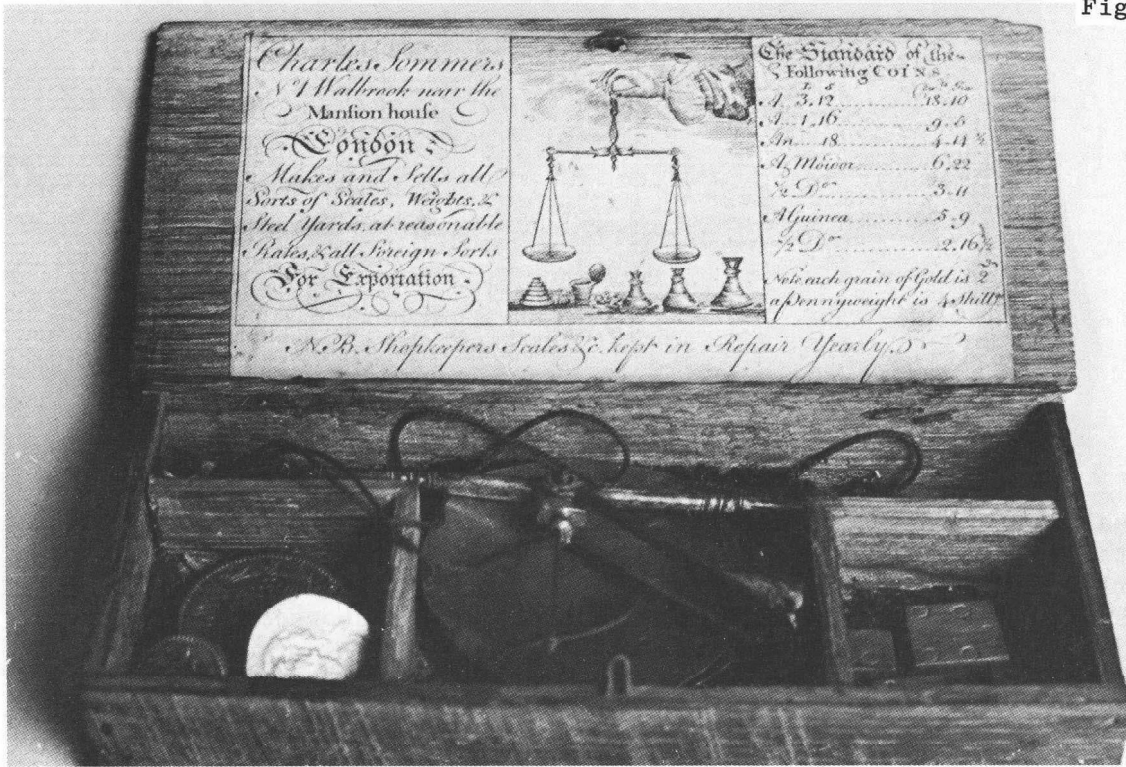 Fig
Charles Sommers
No 1 Walbrook near the
Mansion house
London
Makes and Sells all
Sorts of Scales, Weights, &
Steel Yards, at reasonable
Rates, & all Foreign Sorts
For Exportation
The Standard of the
Following COINS
A 3.12 18.10
A 1.16 9.5
An 18 4.14 ½
A Moidor 6.22
½ Do 3.11
A Guinea 5.9
½ Do 2.16 ½
Note each grain of Gold is 2d
a pennyweight is 4 Shills
N.B. Shopkeepers Scales &c. kept in Repair Yearly.